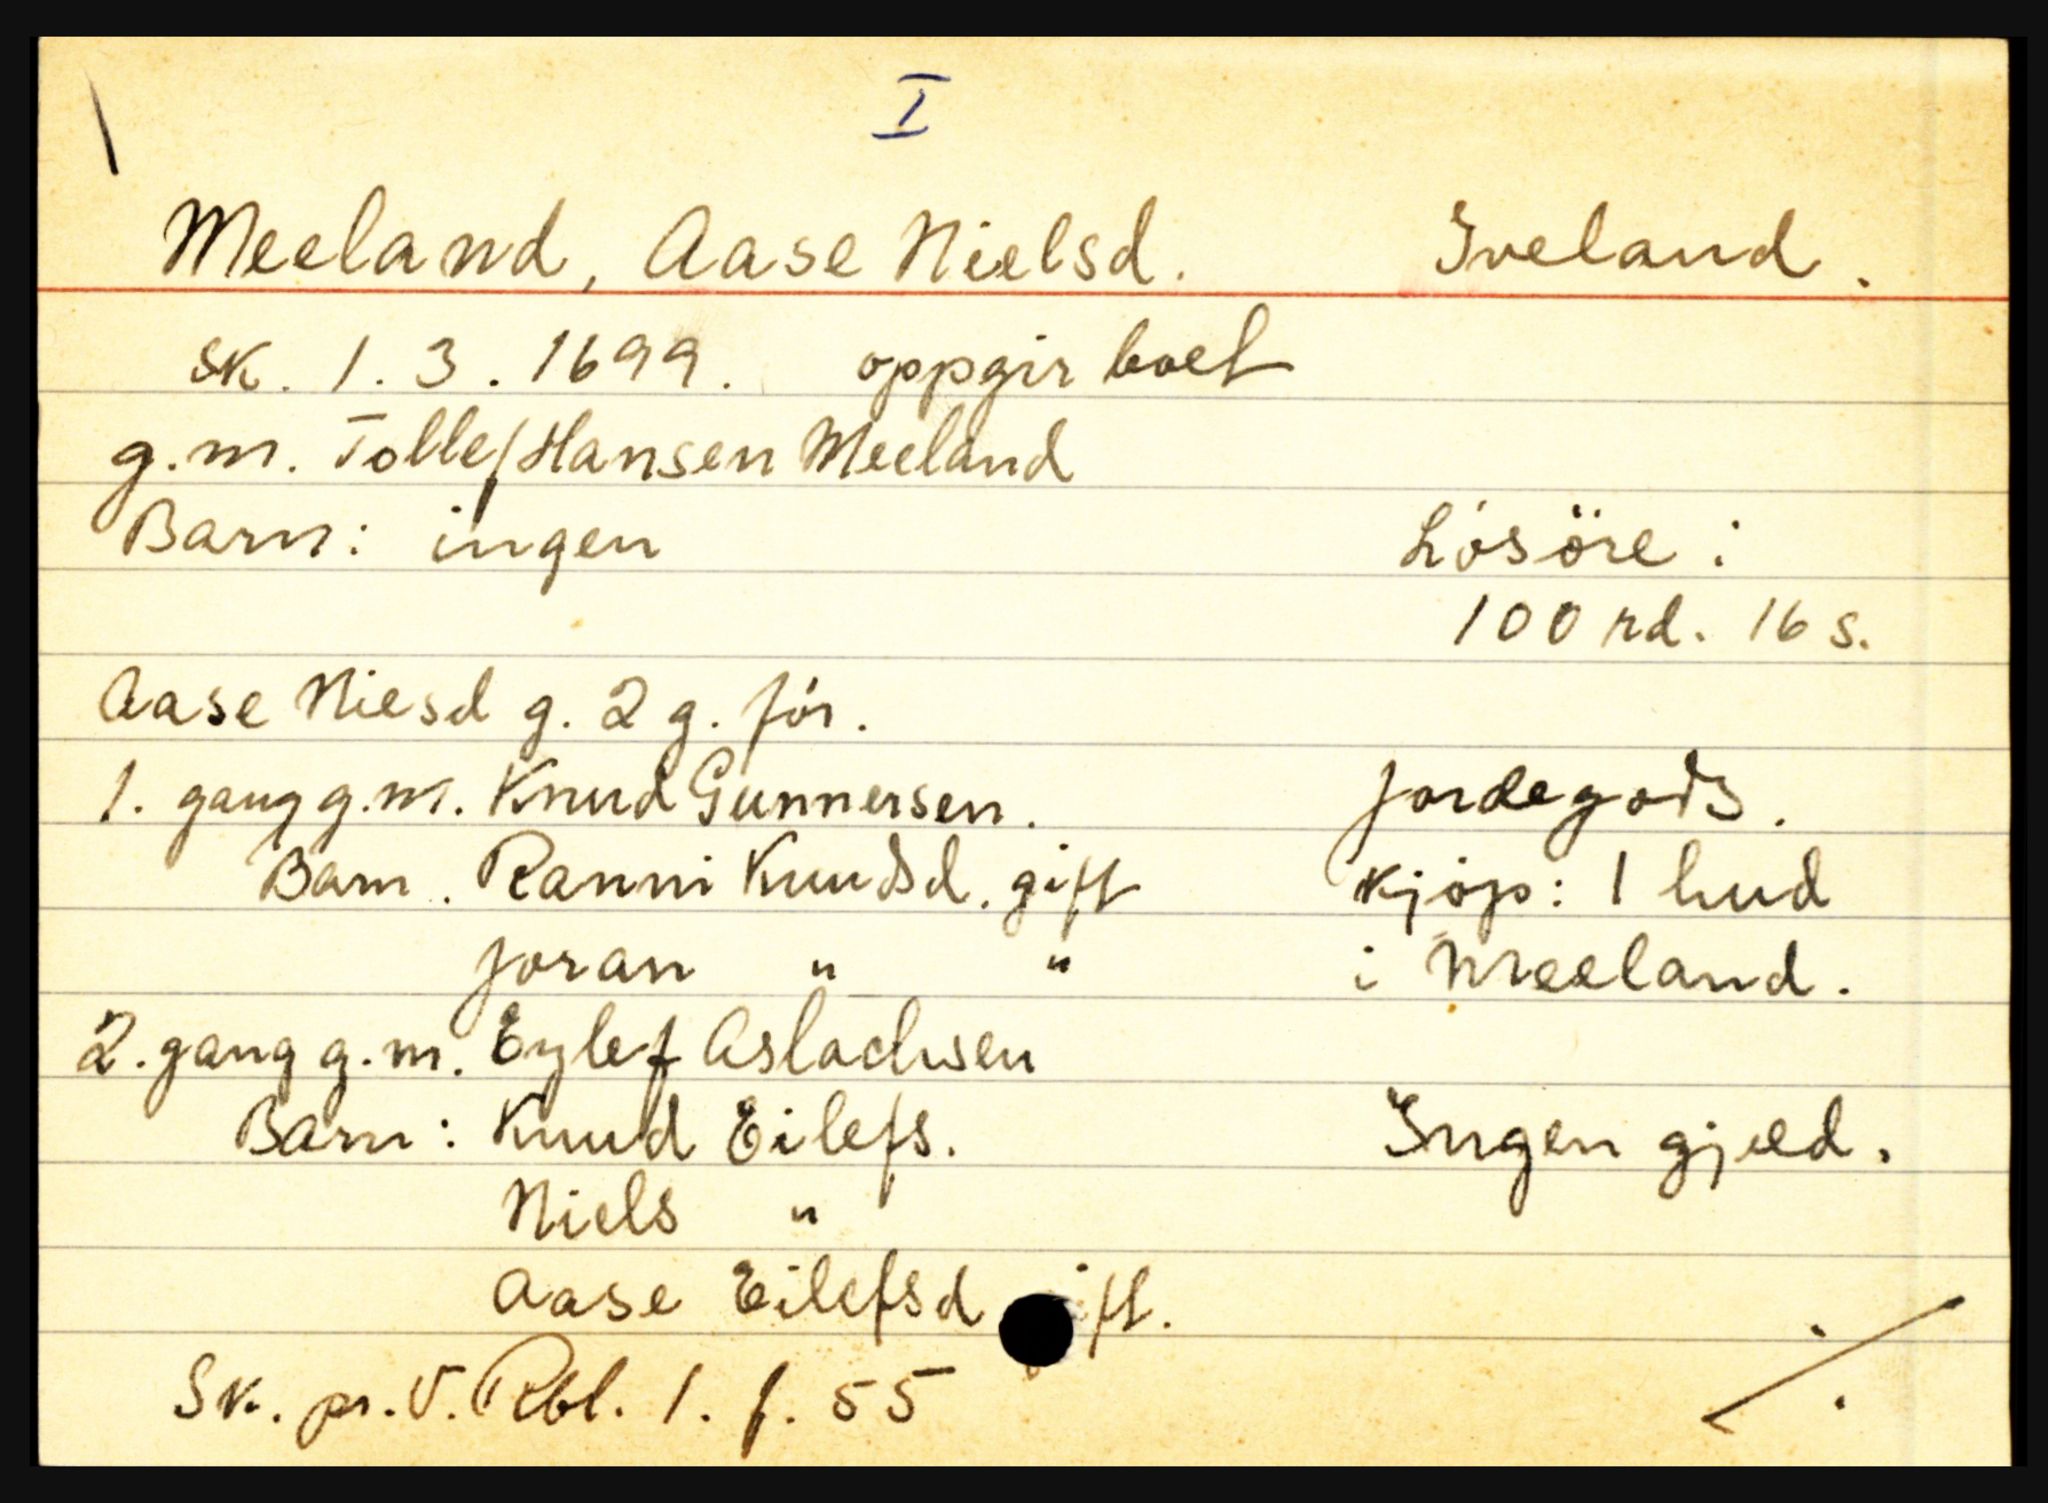 I
Meeland, Aase Nielsd. Iveland.
sk. 1.3.1699. oppgir boet
g.m. Tollef Hansen Meeland
Barn: ingen
Lösöre:
100 rd. 16 s.
Aase Niesd g. 2 g. för.
1. gang g.m. Knud Gunnersen.
Jordegods.
Barn. Ranni Knudsd. gift
kjöp: 1 hud
Joran " "
i Meeland.
2. gang g.m. Eylef Aslachsen
Barn: Knud Eilefs.
Ingen gjæld.
Niels "
Aase Eilefsd gift.
Sk. pr. V. Rbl. 1. f. 55
./.